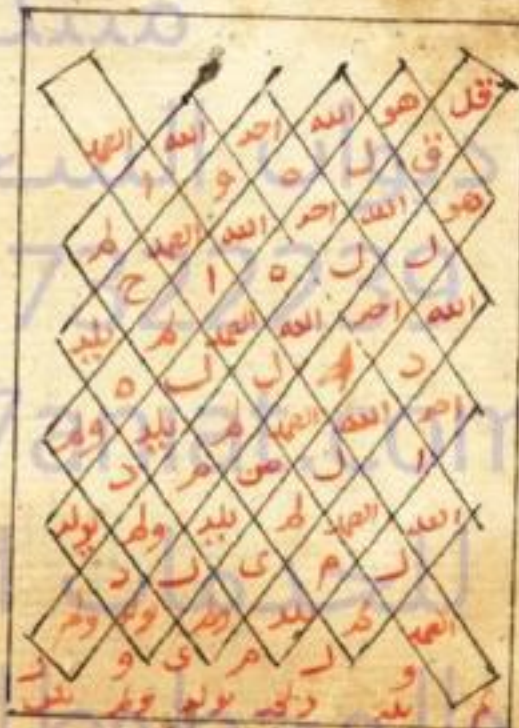 قل هو الله احد الله الصمد
ق ل ه و ا
هو الله احد الله الصمد لم
ل ل ه ا ح
الله احد الله الصمد لم يلد
د ا ل ل ه
احد الله الصمد لم يلد ولم
ا ل ص م د
الله الصمد لم يلد ولم يولد
ل م ى ل د
الصمد لم يلد ولم يولد ولم
و ل م ى و
لم يلد ولم يولد ولم يكن